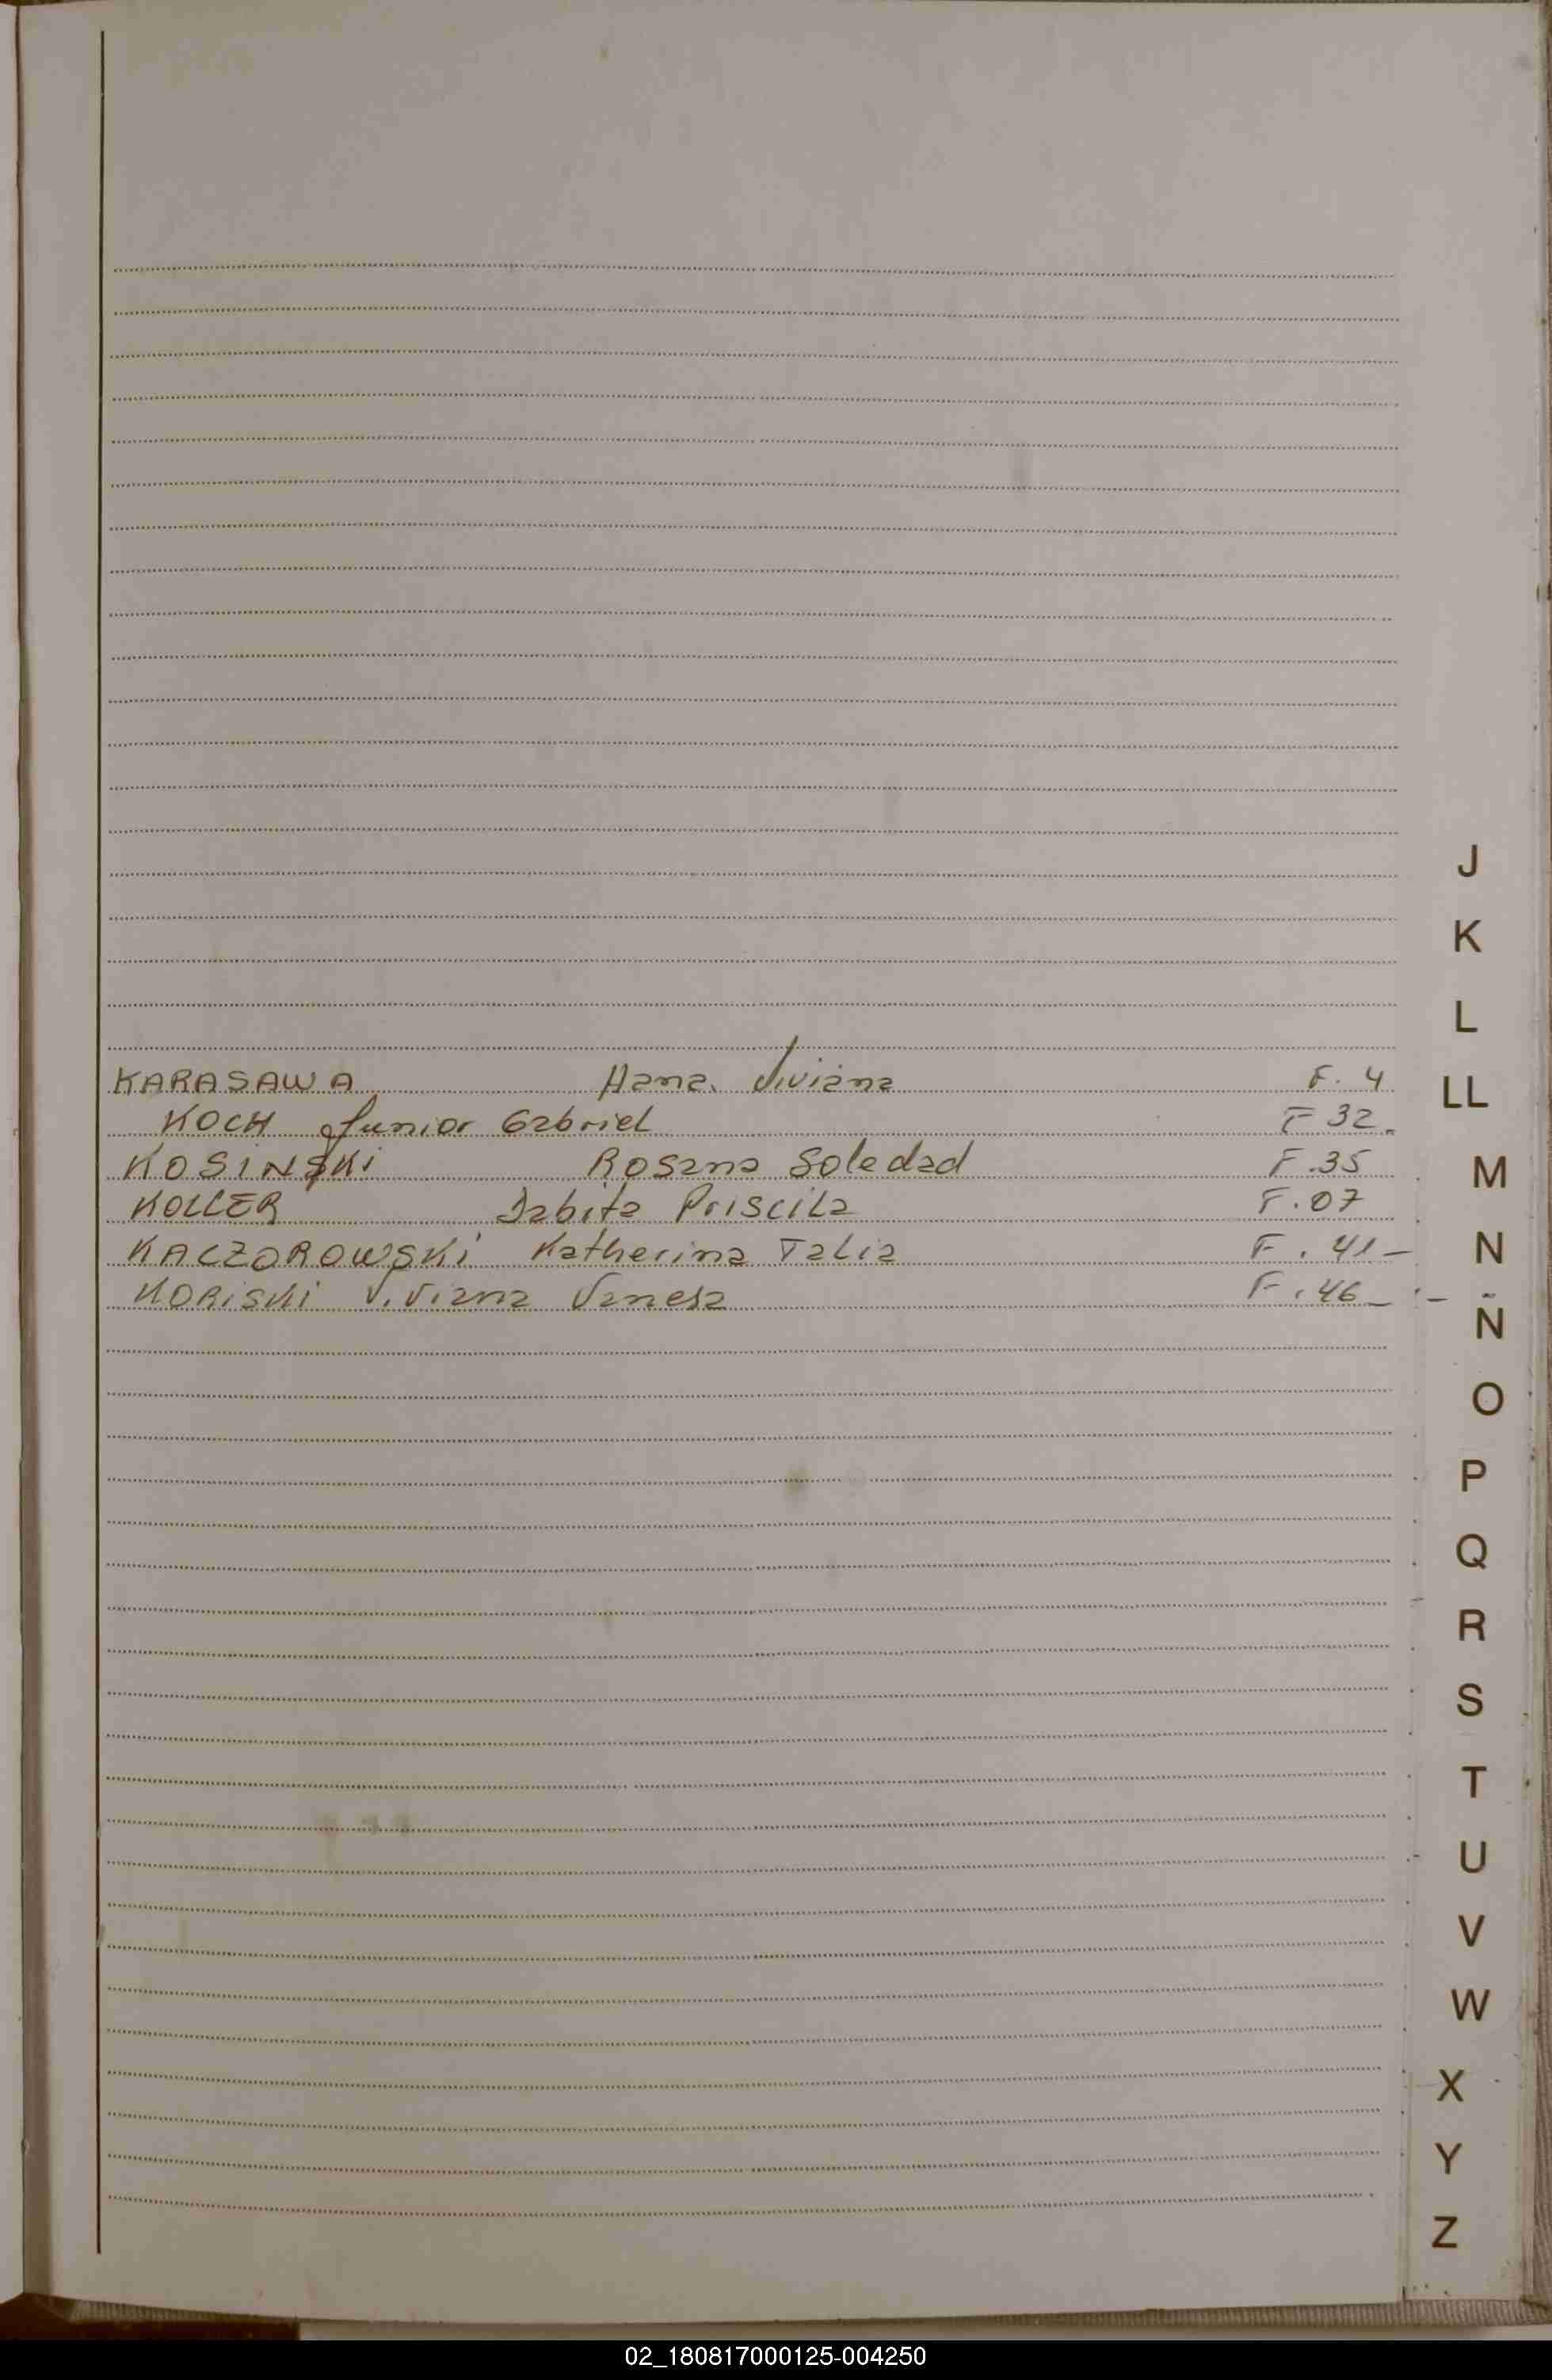 J
K
L
KARASAWA Hana. Viviana F. 4
LL
KOCH Junior Gabriel F 32.
KOSINSKi Rosana Soledad F.35
M
KOLLER Tabita Priscila F.07
KACZOROWSKi Katherina Talia F. 41-
N
KORiSKi Viviana Vanesa F.46_
Ñ
O
P
Q
R
S
T
U
V
W
X
Y
Z
02_180817000125-004250